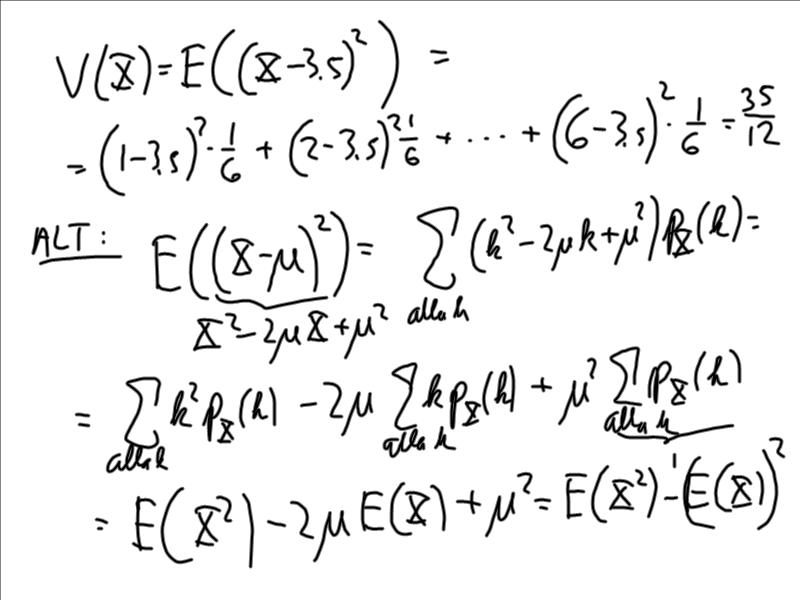 V(X) = E((X-3.5)²) =
= (1-3.5)² · 1/6 + (2-3.5)² 1/6 + ... + (6-3.5)² · 1/6 = 35/12
ALT: E((X-μ)²) = ∑ (k² - 2μk + μ²) p_X(k) =
X² - 2μX + μ² alla k
= ∑ k² p_X(k) - 2μ ∑ k p_X(k) + μ² ∑ p_X(k)
alla k alla k alla k
1
= E(X²) - 2μ E(X) + μ² = E(X²) - (E(X))²